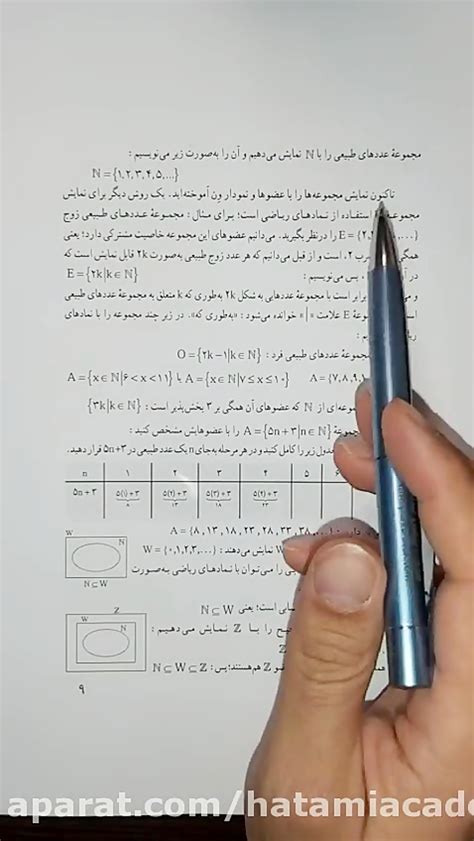 مجموعهٔ عددهای طبیعی را با ℕ نمایش می‌دهیم و آن را به‌صورت زیر می‌نویسیم :
ℕ = {۱,۲,۳,۴,۵,...}
تاکنون نمایش مجموعه‌ها را با عضوها و نمودار ون آموخته‌اید. یک روش دیگر برای نمایش
استفاده از نمادهای ریاضی است؛ برای مثال : مجموعهٔ عددهای طبیعی زوج
E = {۲, ...} را درنظر بگیرید. می‌دانیم عضوهای این مجموعه خاصیت مشترکی دارد؛ یعنی
همگی ۲، است و از قبل می‌دانیم که هر عدد زوج طبیعی به‌صورت ۲k قابل نمایش است که
در آن ، پس می‌نویسیم : E = {۲k|k∈ℕ}
و برابر است با مجموعهٔ عددهایی به شکل ۲k به‌طوری که k متعلق به مجموعهٔ عددهای طبیعی
E علامت «|» خوانده می‌شود : «به‌طوری که». در زیر چند مجموعه را با نمادهای
مجموعهٔ عددهای طبیعی فرد : O = {۲k−۱|k∈ℕ}
A = {۷,۸,۹,۱ A = {x∈ℕ|۷≤x≤۱۰} یا A = {x∈ℕ|۶<x<۱۱}
از ℕ که عضوهای آن همگی بر ۳ بخش‌پذیر است : {۳k|k∈ℕ}
A = {۵n+۳|n∈ℕ} را با عضوهایش مشخص کنید :
جدول زیر را کامل کنید و در هر مرحله به‌جای n یک عدد طبیعی در ۵n+۳ قرار دهید.
n ۱ ۲ ۳ ۴ ۵
۵n+۳ ۵(۱)+۳ ۵(۲)+۳ ۵(۳)+۳ ۵(۴)+۳
۸ ۱۳ ۱۸ ۲۳
A = {۸,۱۳,۱۸,۲۳,۲۸,۳۳,۳۸,...
W نمایش می‌دهند : W = {۰,۱,۲,۳,...}
را می‌توان با نمادهای ریاضی به‌صورت
W
N
N⊆W
است؛ یعنی ℕ⊆W
را با ℤ نمایش می‌دهیم :
ℤ هم هستند؛ پس : ℕ⊆W⊆ℤ
Z
W
N
۹
aparat.com/hatamiacade